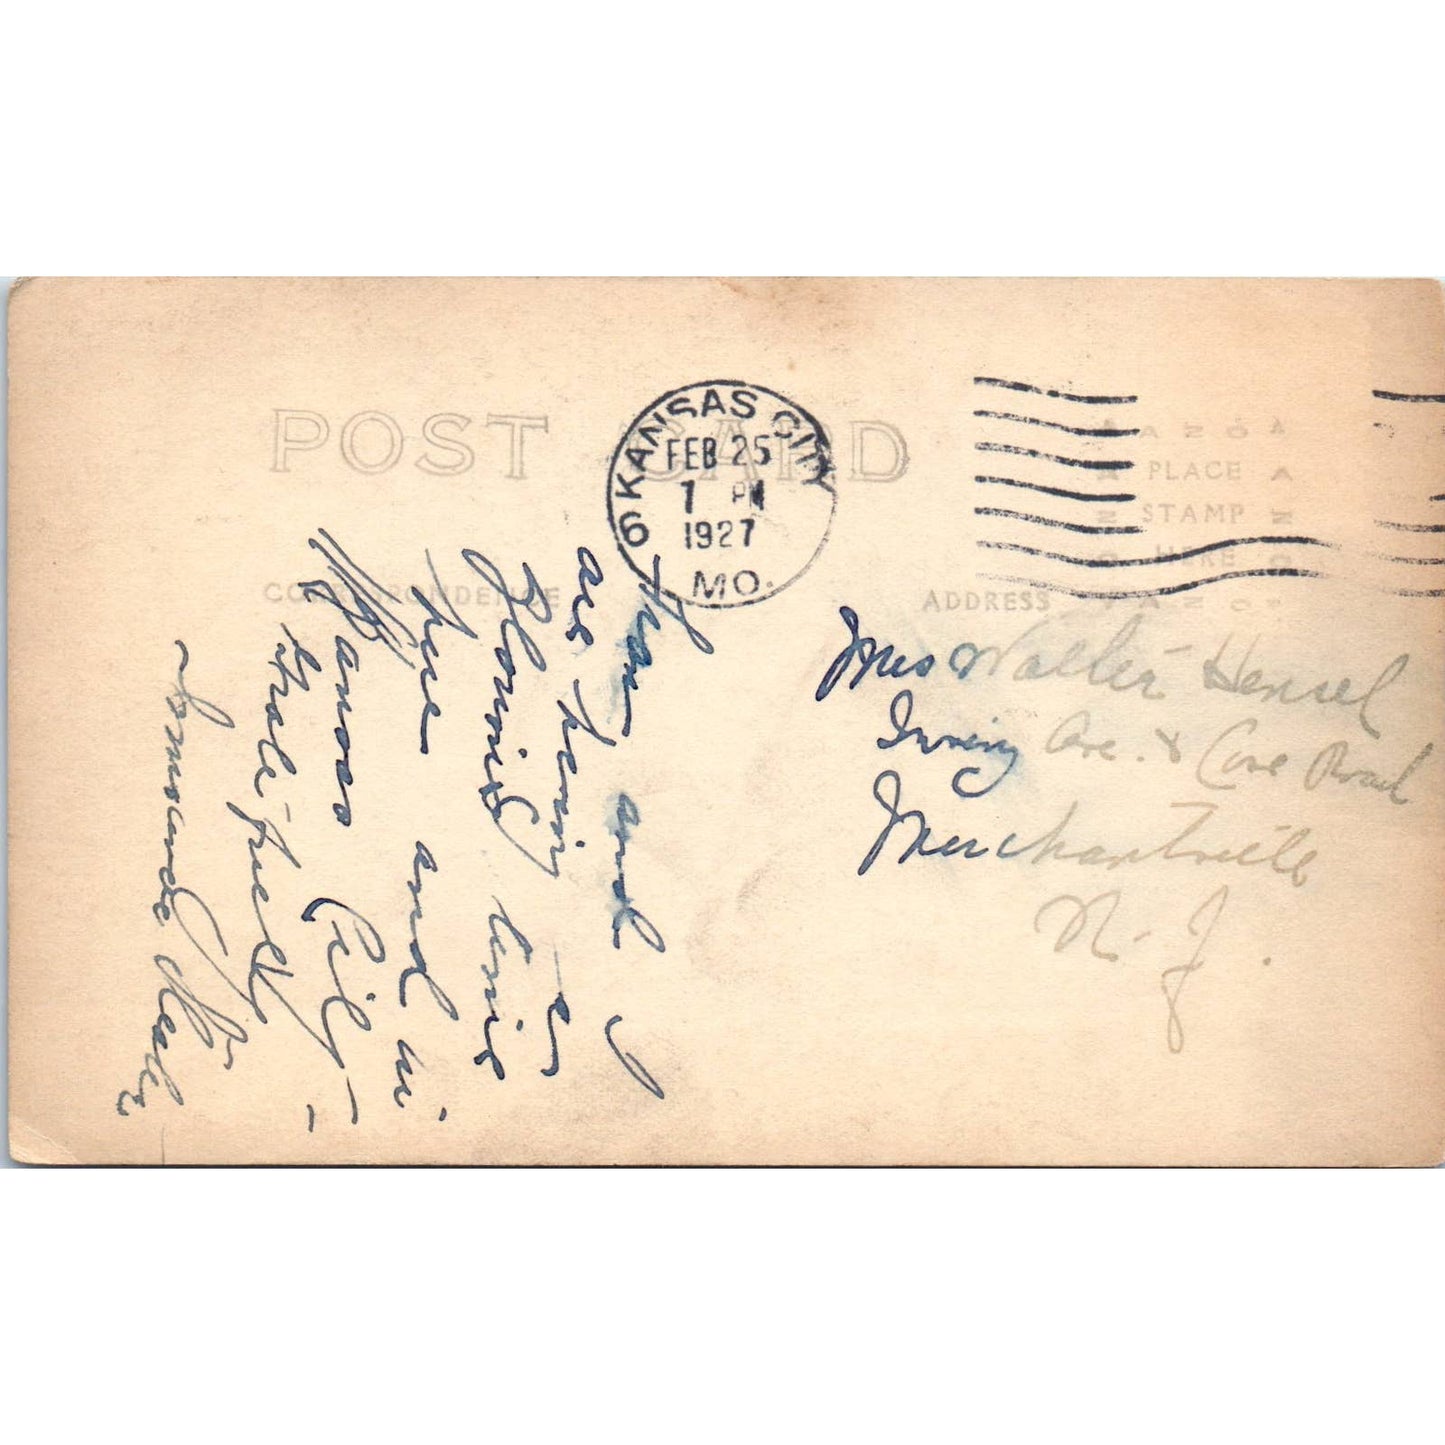 POST CARD
6 KANSAS CITY
FEB 25
1 PM
1927
MO.
PLACE
STAMP
HERE
CORRESPONDENCE
ADDRESS
Fran and I
are having a
Glorious time
here and in
Kansas City –
Mrs Walter Hensel
Irving Ave. & Cove Road
Merchantville
N. J.